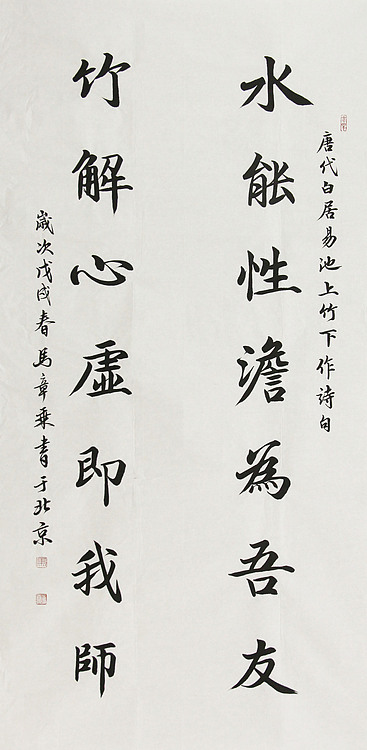 唐代白居易池上竹下作詩句
水能性澹為吾友
竹解心虛即我師
歲次戊戌春馬章乘書于北京